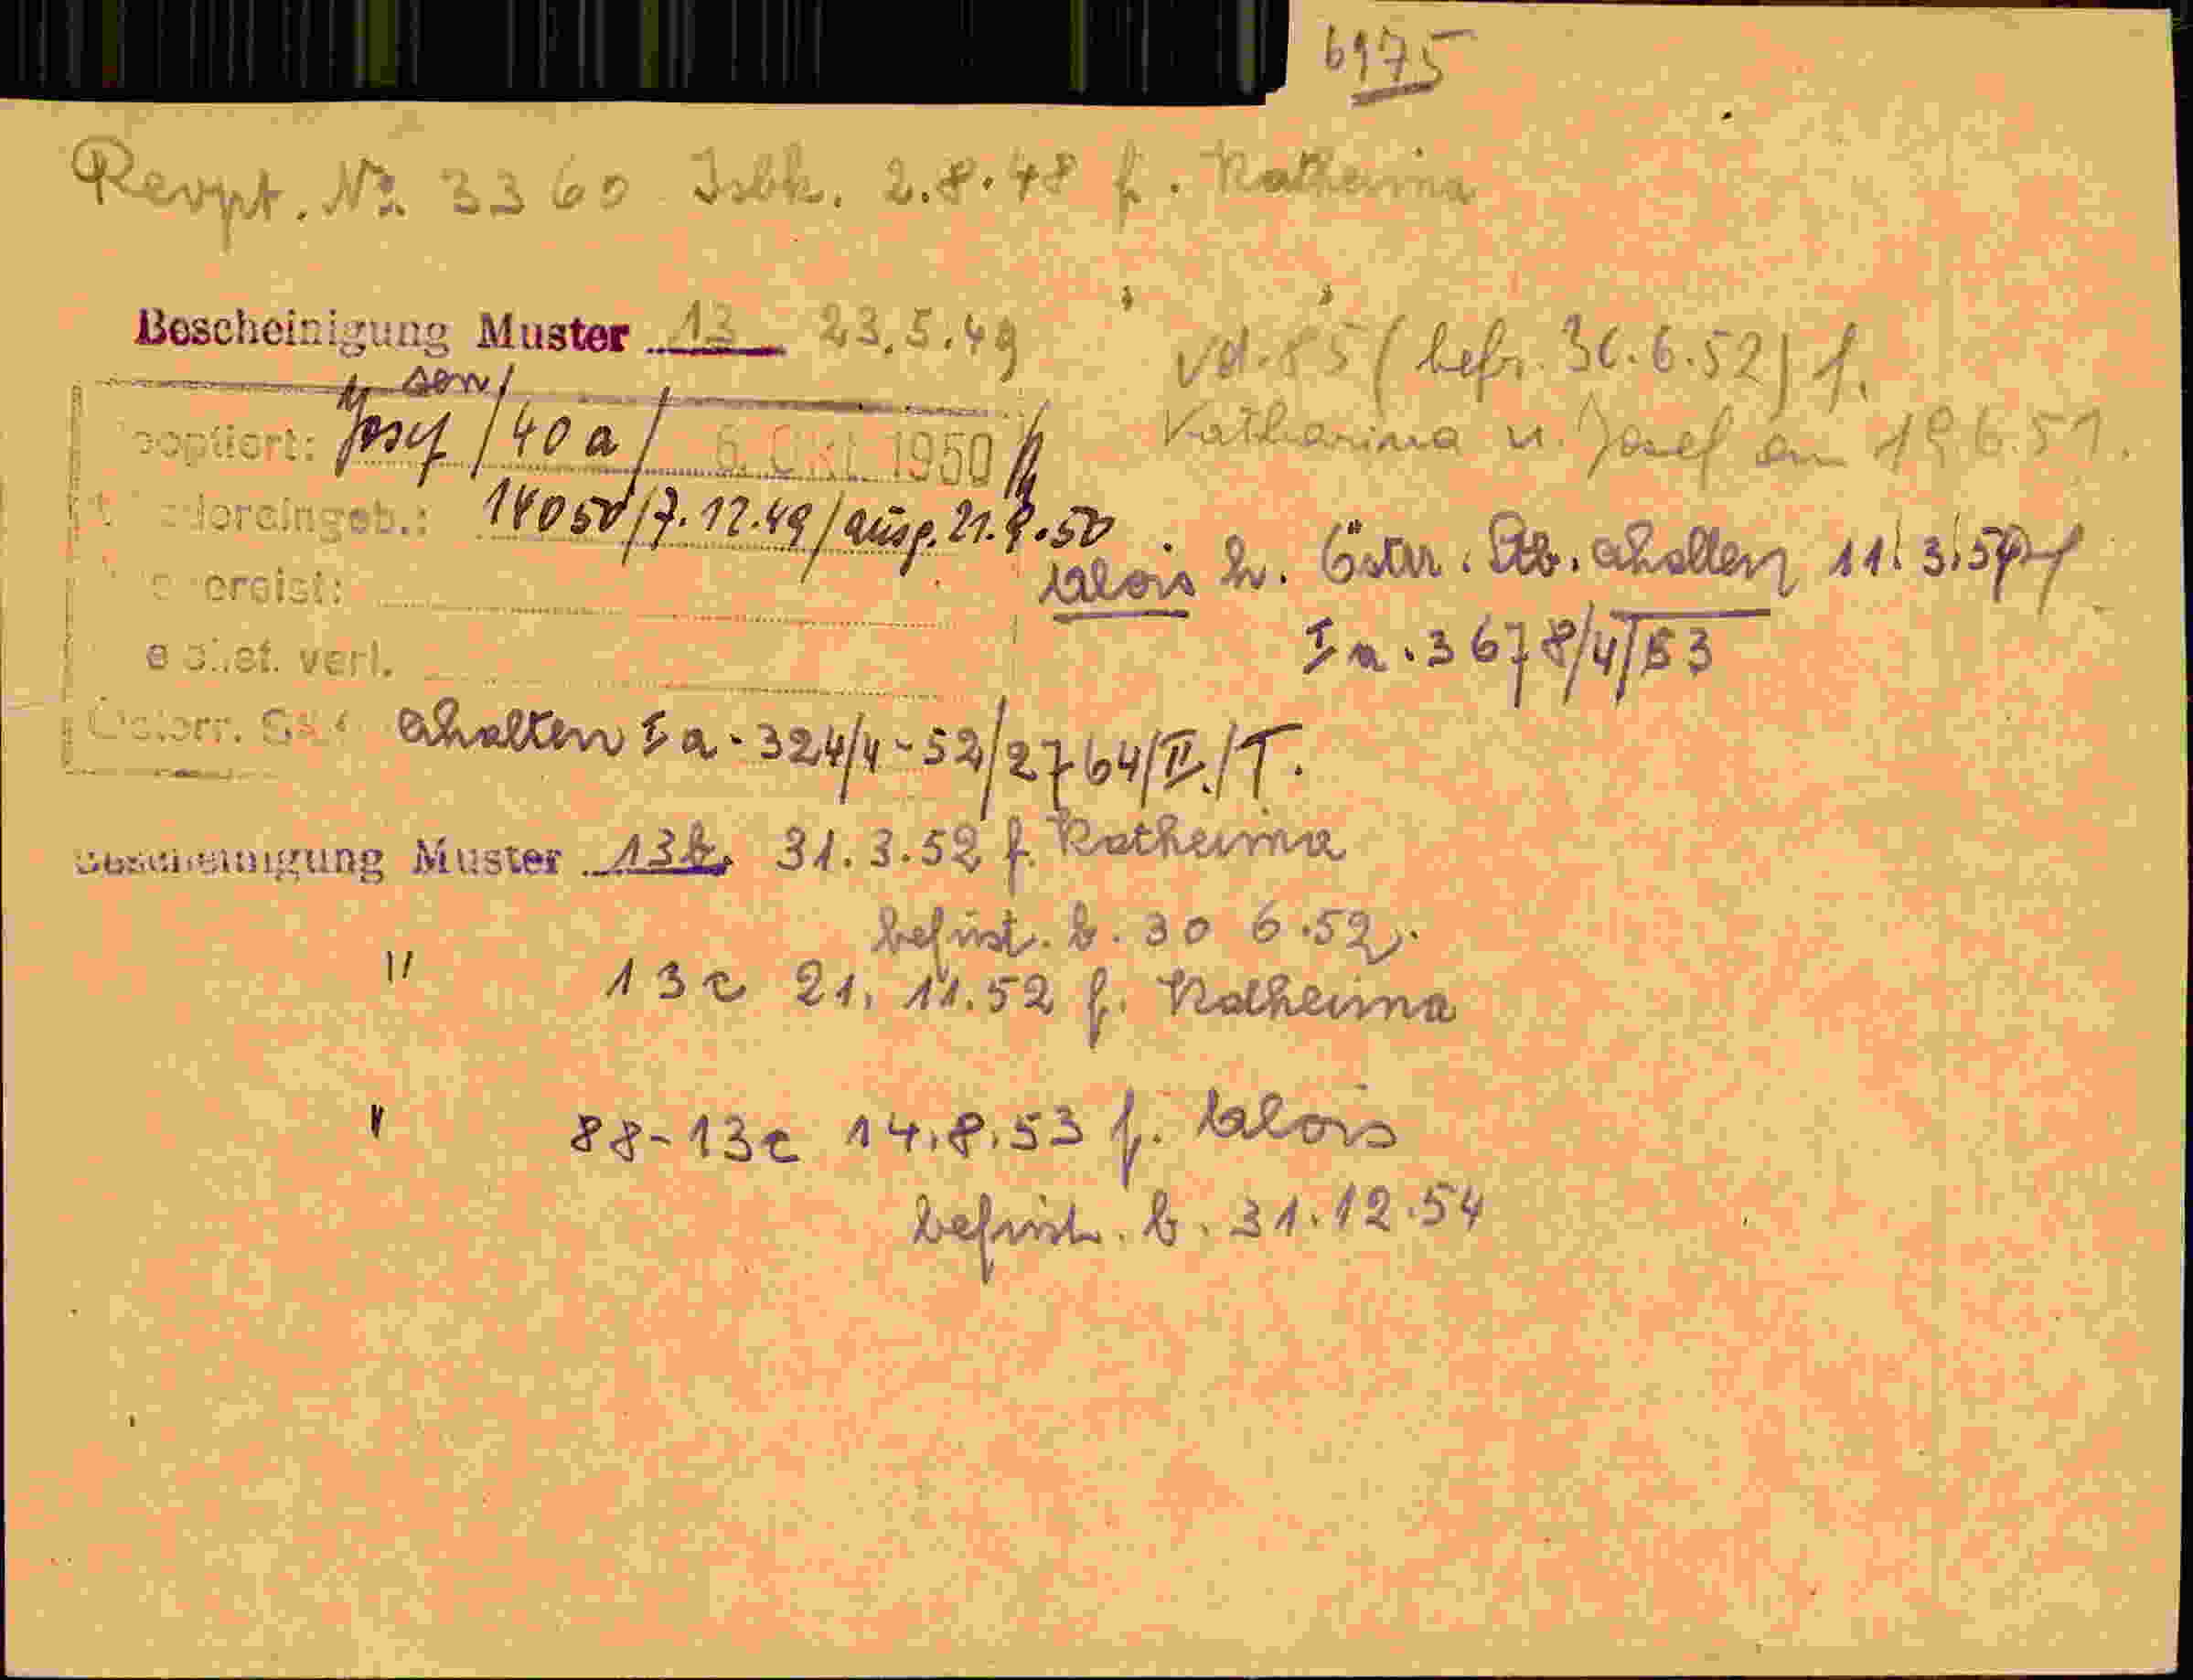 6175
Revpt. No. 3360 Isbk. 2.8.48 f. Katherina
Bescheinigung Muster 13 23.5.49
" "
vd. 85 (befr. 30.6.52) f.
Katharina u. Josef am 19.6.51.
sen/
ooptiert: Josef / 40 a / 6. Okt. 1950
dereingeb.: 14050/7.12.49/ausg. 21.9.50
ereist:
verl.
Alois h. Östr. Stb. erhalten 11.3.54
I a. 3678/4/53
Österr. erhalten I a - 324/4-52/2764/II./T.
Bescheinigung Muster 13b. 31.3.52 f. Katherina
befrist. b. 30 6.52.
" 13c 21. 11.52 f. Katherina
" 88-13c 14.8.53 f. Alois
befrist. b. 31.12.54